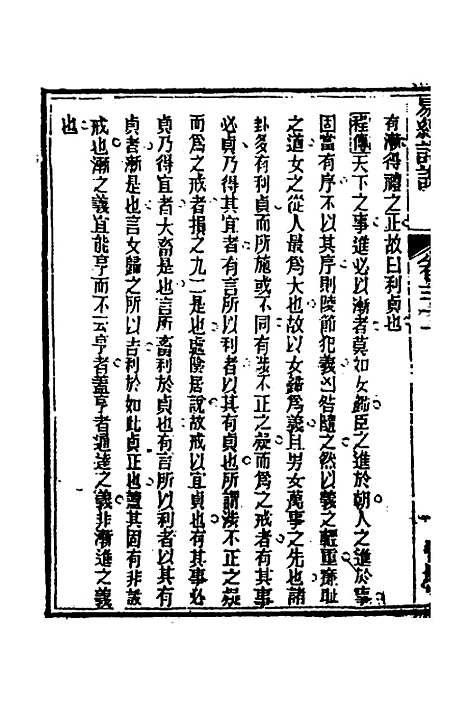 有漸得禮之正故曰利貞也
程傳天下之事進必以漸者莫如女歸臣之進於朝人之進於事
固當有序不以其序則陵節犯義凶咎隨之然以義之輕重廉恥
之道女之從人最爲大也故以女歸爲義且男女萬事之先也諸
卦多有利貞而所施或不同有涉不正之疑而爲之戒者有其事
必貞乃得其宜者有言所以利者以其有貞也所謂涉不正之疑
而爲之戒者損之九二是也處陰居說故戒以宜貞也有其事必
貞乃得宜者大畜是也言所畜利於貞也有言所以利者以其有
貞者漸是也言女歸之所以吉利於如此貞正也蓋其固有非設
戒也漸之義宜能亨而不云亨者蓋亨者通達之義非漸進之義
也